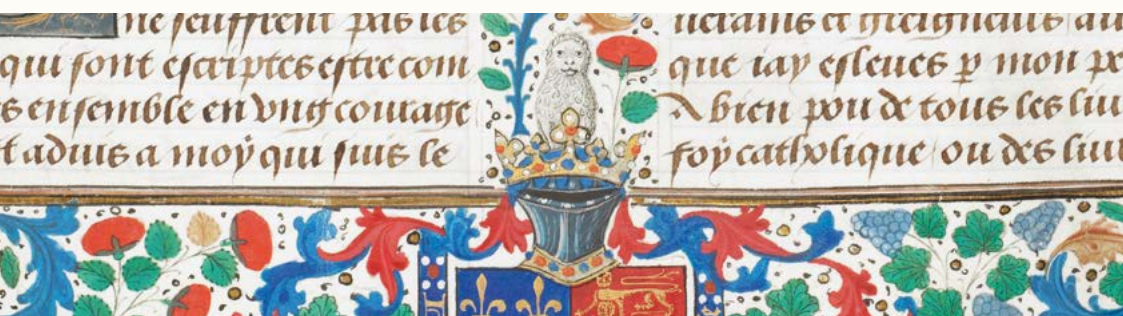 ne seuffrent pas les
qui sont escriptes estre com
s ensemble en vng couraige
t aduis a moy qui suis le
uerains et greigneurs au
que iay esleues p mon pe
A bien pou de tous les liu
foy catholique ou des liur